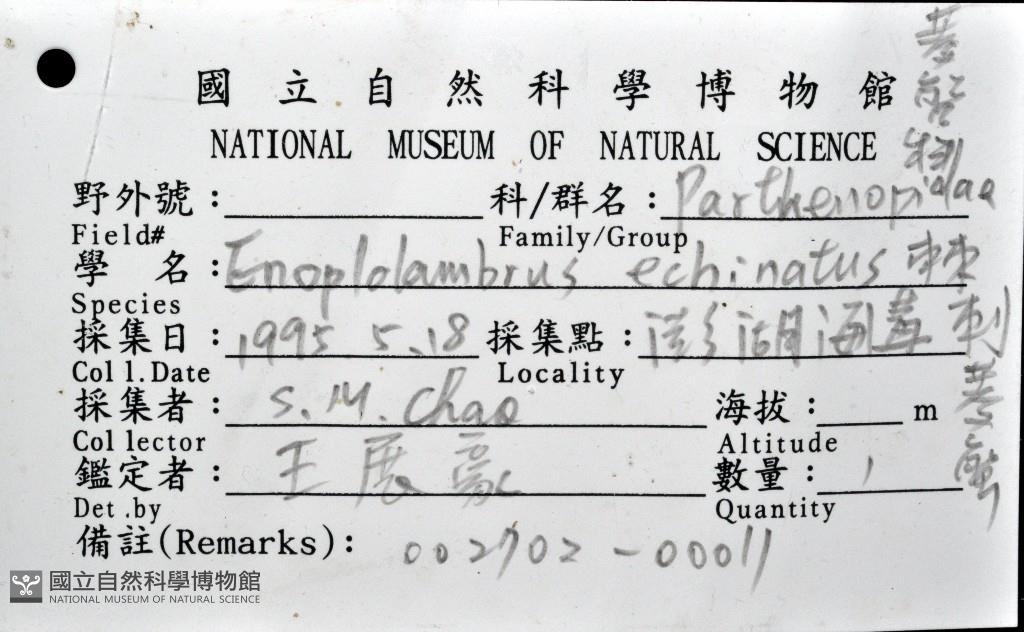 國立自然科學博物館
NATIONAL MUSEUM OF NATURAL SCIENCE
菱蟹科
野外號： 科/群名：Parthenopidae
Field# Family/Group
學 名：Enoplolambrus echinatus 棘刺菱蟹
Species
採集日：1995.5.18 採集點：澎湖海
Coll.Date Locality
採集者：S.M.Chao 海拔： m
Collector Altitude
鑑定者：王展豪 數量：1
Det.by Quantity
備註(Remarks)：002702-00011
國立自然科學博物館
NATIONAL MUSEUM OF NATURAL SCIENCE